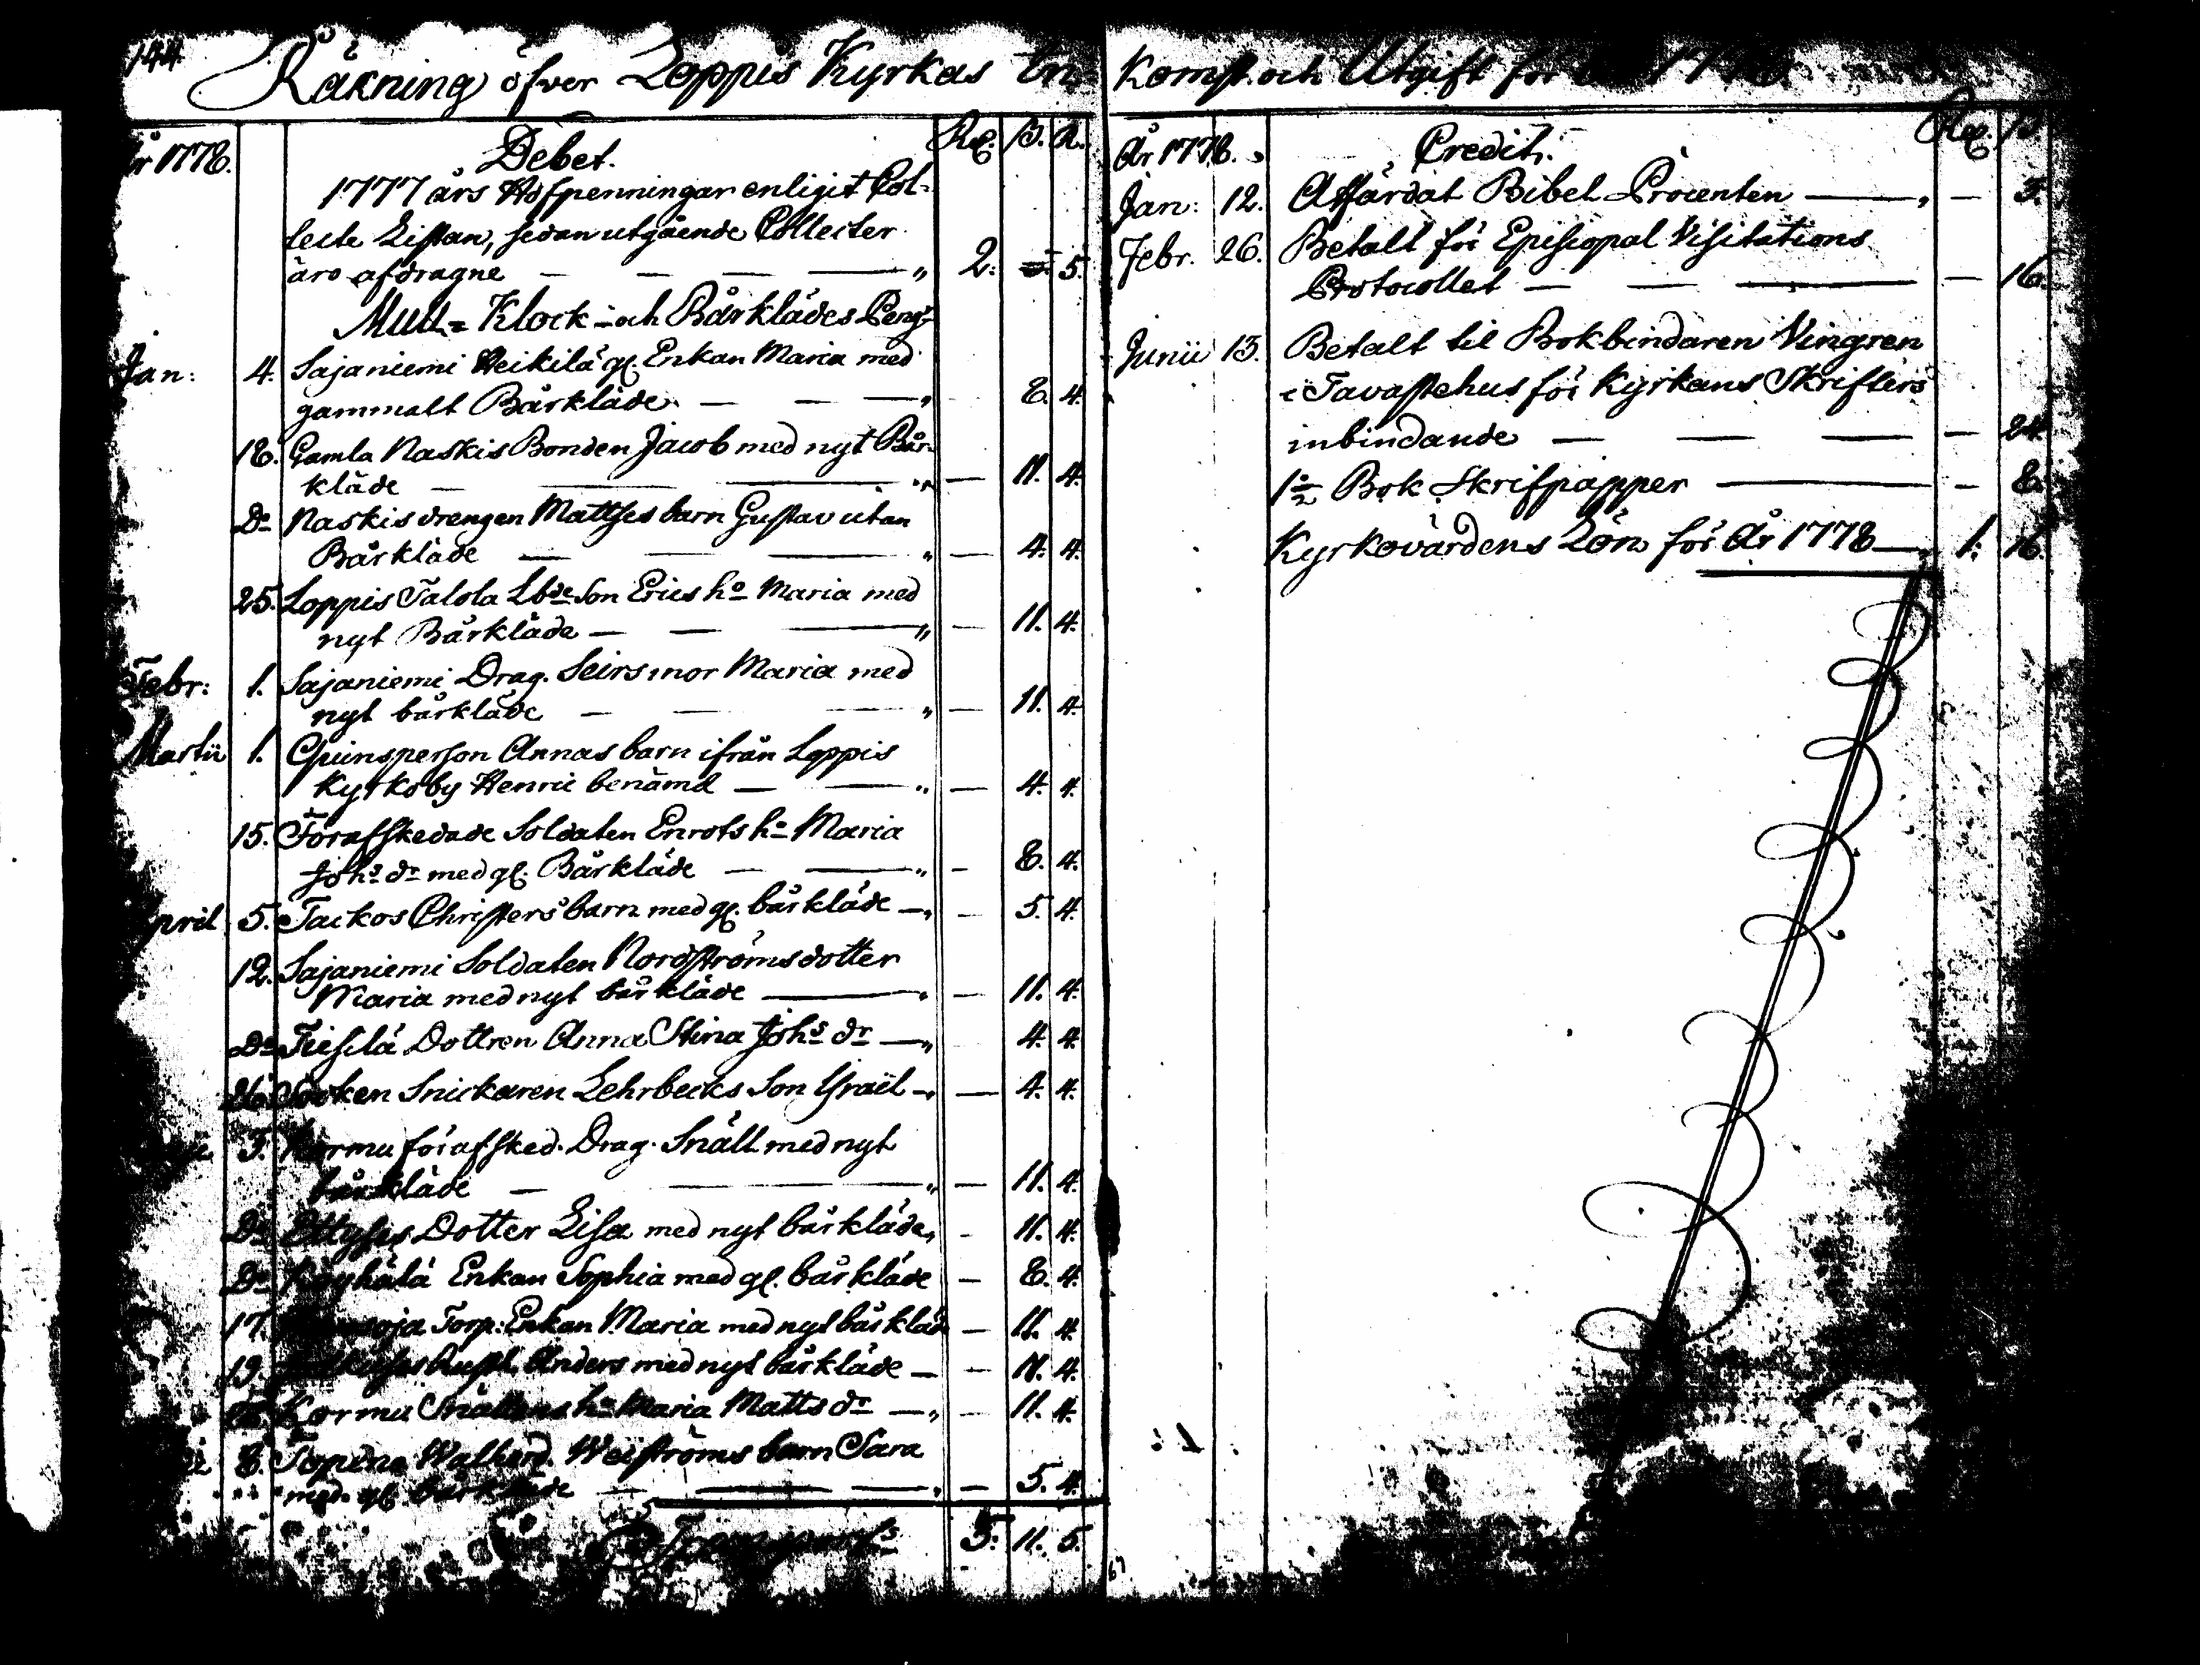 144.
Räkning öfver Loppis Kyrkas In-
År 1778.
Debet.
Rd. ß. R.
1777 års Håfpenningar enligit Col-
lecte Listan, sedan utgående Collecter
äro afdragne — — — — " 2. 5.
Mull- Klock- och Bårklädes Peng:
Jan: 4. Sajaniemi Heikilä gl. Enkan Maria med
gammalt Bårkläde. — — — " 8. 4.
18. Gamla Naskis Bonden Jacob med nyt Bår-
kläde — — — " — 11. 4.
Do Naskis drengen Mattses barn Gustav utan
Bårkläde — — — " — 4. 4.
25. Loppis Talola Lbde Son Erics ho Maria med
nyt Bårkläde — — — " — 11. 4.
Febr: 1. Sajaniemi Drag. Seirs mor Maria med
nyt bårkläde — — — " — 11. 4.
Martii 1. Qvinsperson Annas barn ifrån Loppis
Kyrkoby Henric benämd — — " — 4. 4.
15. Förafskedade Soldaten Enrots ho Maria
Johs dr med gl. Bårkläde — — " — 8. 4.
April 5. Tackos Christers barn med gl. bårkläde — " — 5. 4.
12. Sajaniemi Soldaten Nordströms dotter
Maria med nyt bårkläde — " — 11. 4.
Do Dottren Anna Stina Johs dr — " 4. 4.
26. Socken Snickaren Lehrbecks Son Israël — " — 4. 4.
3. Kormu förafsked. Drag. Snäll med nyt
bårkläde — — — " — 11. 4.
Do Dotter Lisa med nyt bårkläde " — 11. 4.
Do Köyhälä Enkan Sophia med gl. bårkläde — 8. 4.
17. Torp. Enkan Maria med nyt bårkläde — 11. 4.
19. Rustl. Anders med nyt bårkläde — — 11. 4.
Kormu Snällens ho Maria Matts dr — " — 11. 4.
8. Topeno Weiströms barn Sara
med gl. bårkläde — — — " — 5. 4.
Transports 5. 11. 5.
Komst. och Utgift för
År 1778.
Credit.
Rd. ß.
Jan: 12. Affärdat Bibel Procenten — " — 3.
Febr. 26. Betalt för Episcopal Visitations
Protocollet — — — — 16.
Junii 13. Betalt til Bokbindaren Vingren
i Tavastehus för Kyrkans Skrifters
inbindande — — — — 24.
1 1/2 Bok Skrifpapper — — 8.
Kyrkovärdens Lön för År 1778 — " 1. 16.
67